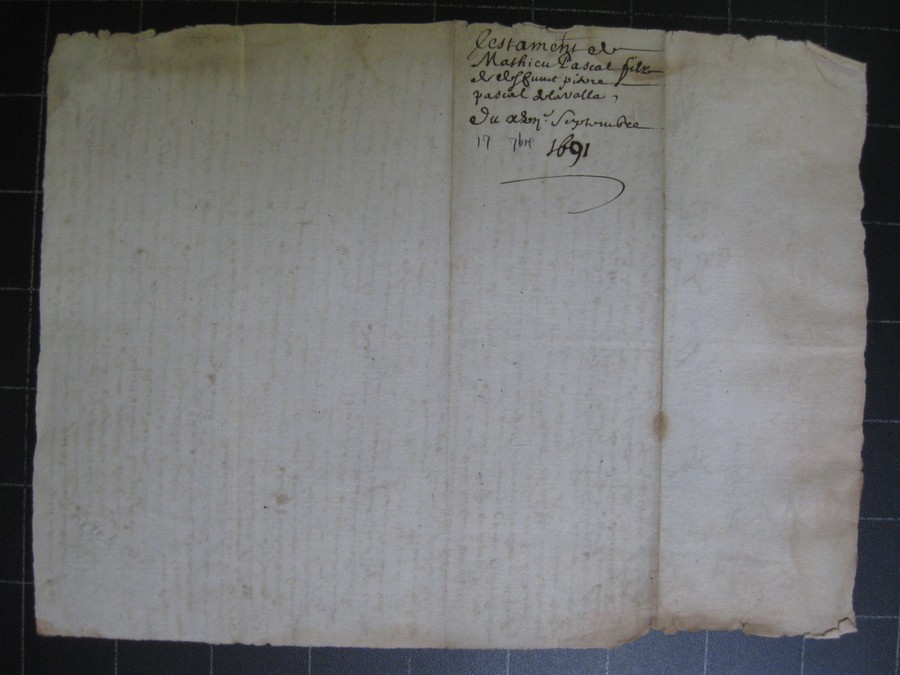 Testament de
Mathieu Pascal filz
de deffunct pierre
pascal de lavalla
Du xvii.e Septembre
17 7bre 1691